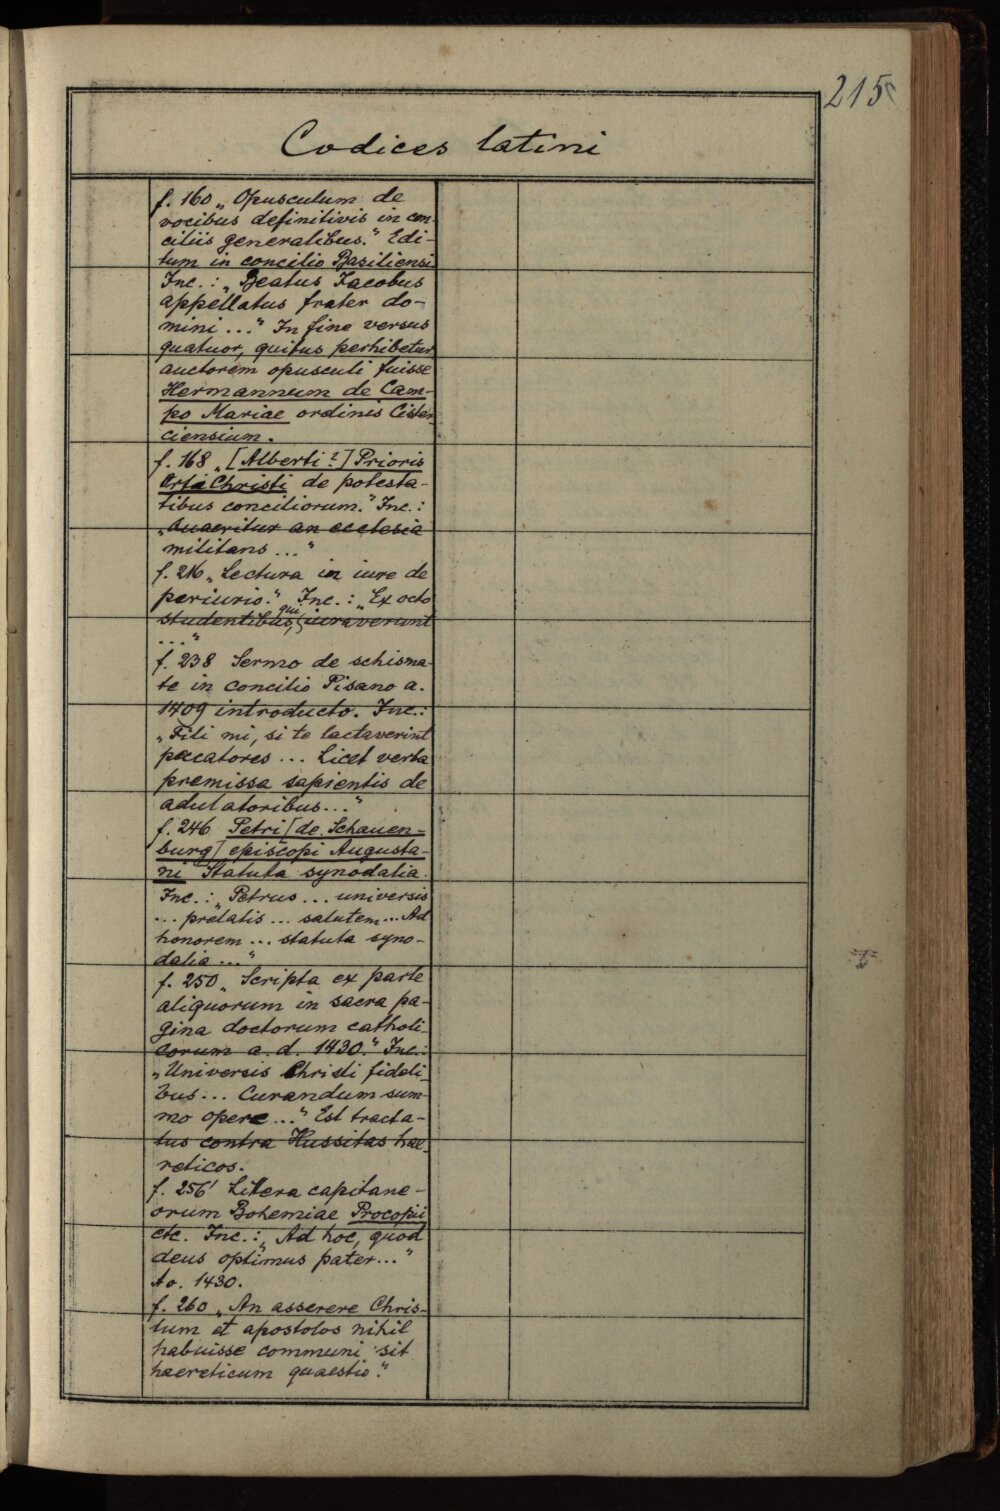 215
Codices latini
f. 160 „Opusculum de
vocibus definitivis in con-
ciliis generalibus.“ Edi-
tum in concilio Basiliensi
Inc.: „Beatus Jacobus
appellatus frater do-
mini ...“ In fine versus
quatuor, quibus perhibetur
auctorem opusculi fuisse
Hermannum de Cam-
po Mariae ordinis Cister-
ciensium.
f. 168 „[Alberti?] Prioris
Orti Christi de potesta-
tibus conciliorum.“ Inc.:
„Quaeritur an ecclesia
militans ...“
f. 216 „Lectura in iure de
periurio.“ Inc.: „Ex octo
studentibus, qui iuraverunt
...“
f. 238 Sermo de schisma-
te in concilio Pisano a.
1409 introducto. Inc.:
„Fili mi, si te lactaverint
peccatores ... Licet verba
premissa sapientis de
adulatoribus ...“
f. 246 Petri [de Schauen-
burg] episcopi Augusta-
ni Statuta synodalia.
Inc.: „Petrus ... universis
... prelatis ... salutem ... Ad
honorem ... statuta syno-
dalia ...“
f. 250 „Scripta ex parte
aliquorum in sacra pa-
gina doctorum catholi-
corum a. d. 1430.“ Inc.:
„Universis Christi fideli-
bus ... Curandum sum-
mo opere ...“ Est tracta-
tus contra Hussitas hae-
reticos.
f. 256' Litera capitane-
orum Bohemiae Procopii
etc. Inc.: „Ad hoc, quod
deus optimus pater ...“
Ao. 1430.
f. 260 „An asserere Chris-
tum et apostolos nihil
habuisse communi sit
haereticum quaestio.“